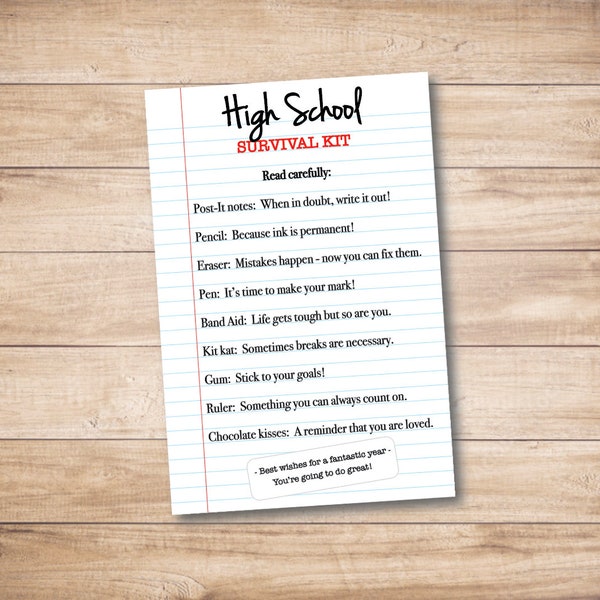 High School
SURVIVAL KIT
Read carefully:
Post-It notes: When in doubt, write it out!
Pencil: Because ink is permanent!
Eraser: Mistakes happen - now you can fix them.
Pen: It's time to make your mark!
Band Aid: Life gets tough but so are you.
Kit kat: Sometimes breaks are necessary.
Gum: Stick to your goals!
Ruler: Something you can always count on.
Chocolate kisses: A reminder that you are loved.
- Best wishes for a fantastic year -
You're going to do great!